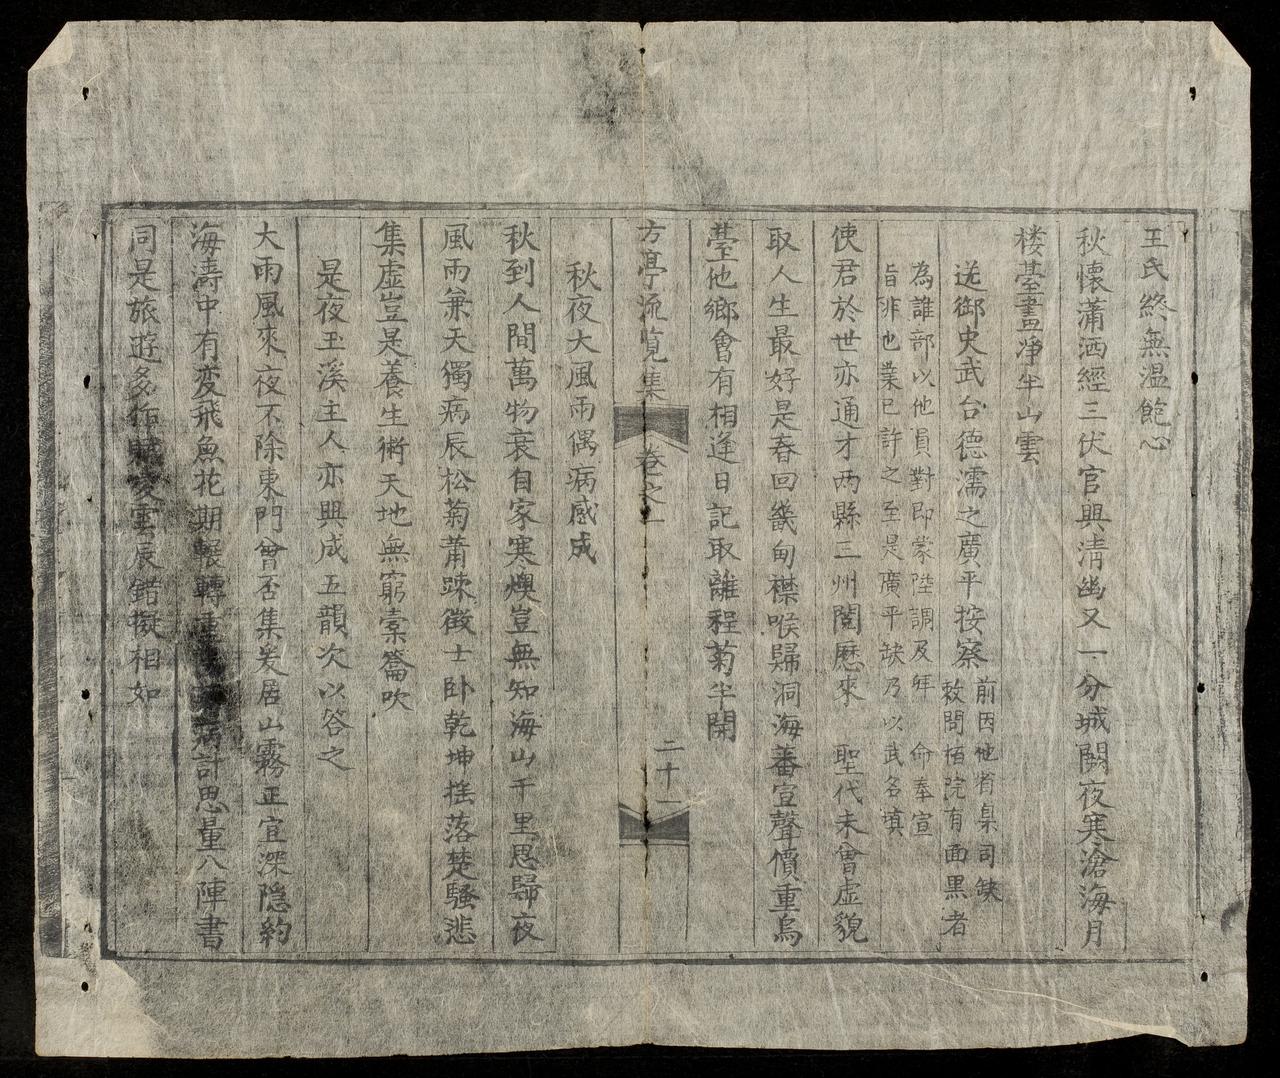 王氏終無溫飽心
秋懷蕭洒經三伏官興淸幽又一分城闕夜寒滄海月
楼臺晝凈半山雲
送御史武台德濡之廣平按察
前因他省臬司缺
敕問栢院有面黑者
為誰部以他員對即蒙陞調及拜 命奉宣
旨非也業已許之至是廣平缺乃以武名塡
使君於世亦通才两縣三州閱歷來 聖代未曾虛貌
取人生最好是春回畿甸襟喉歸洞海蕃宣聲價重烏
臺他鄉會有相逢日記取離程菊半開
方亭流覧集 卷之一 二十一
秋夜大風雨偶病感成
秋到人間萬物衰自家寒燠豈無知海山千里思歸夜
風雨兼天獨病辰松菊蕭踈徵士卧乾坤揺落楚騷悲
集虛豈是養生術天地無窮橐籥吹
是夜玉溪主人亦興成五韻次以答之
大雨風來夜不除東門曾否集爰居山霧正宜深隠約
海濤中有変飛魚花期輾轉計思量八陣書
同是旅遊多作賦雲辰錯擬相如